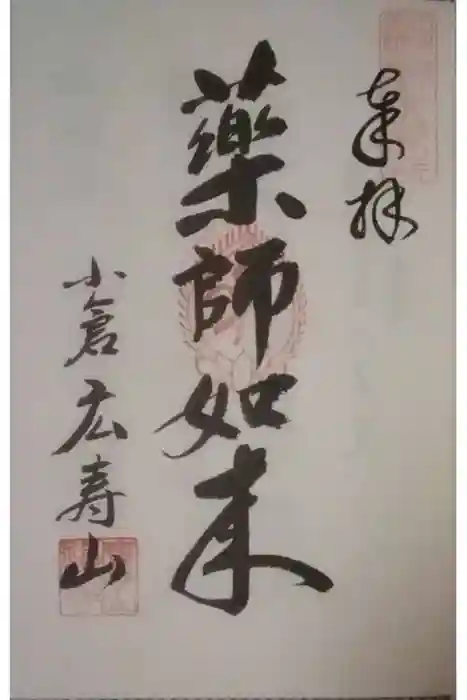 奉拝
藥師如来
小倉広寿山